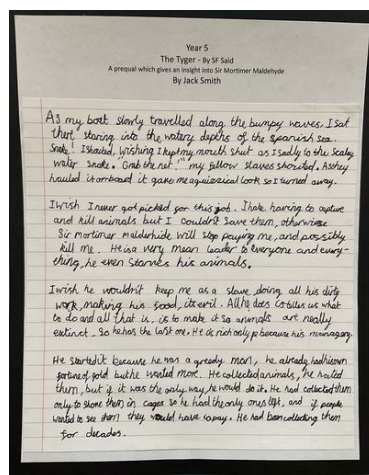 Year 5
The Tyger - By SF Said
A prequel which gives an insight into Sir Mortimer Maldehyde
By Jack Smith
As my boat slowly travelled along the bumpy waves, I sat
there staring into the watery depths of the spanish sea
Snake! I shouted, wishing I kept my mouth shut as I sadly to the scaley
water snake. "Grab the net!" my fellow slaves shouted. As they
hauled it onboard it gave me a quizzical look so I turned away.
I wish I never got picked for this job. I hate having to capture
and kill animals but I couldn't save them, otherwise
Sir mortimer maldehide will stop paying me, and possibly
kill me. He is a very mean leader to everyone and every-
thing, he even starves his animals.
I wish he wouldn't keep me as a slave doing all his dirty
work, making his food, its evil. All he does is tells us what
to do and all that is, is to make it so animals are really
extinct. So he has the last one. He is rich only because his menagery.
He started it because he was a greedy man, he already had his own
fortune of gold but he wanted more. He collected animals, he hated
them, but if it was the only way he would do it. He had collected them
only to shove them in cages so he had the only ones left, and if people
wanted to see them they would have to pay. He had been collecting them
for decades.